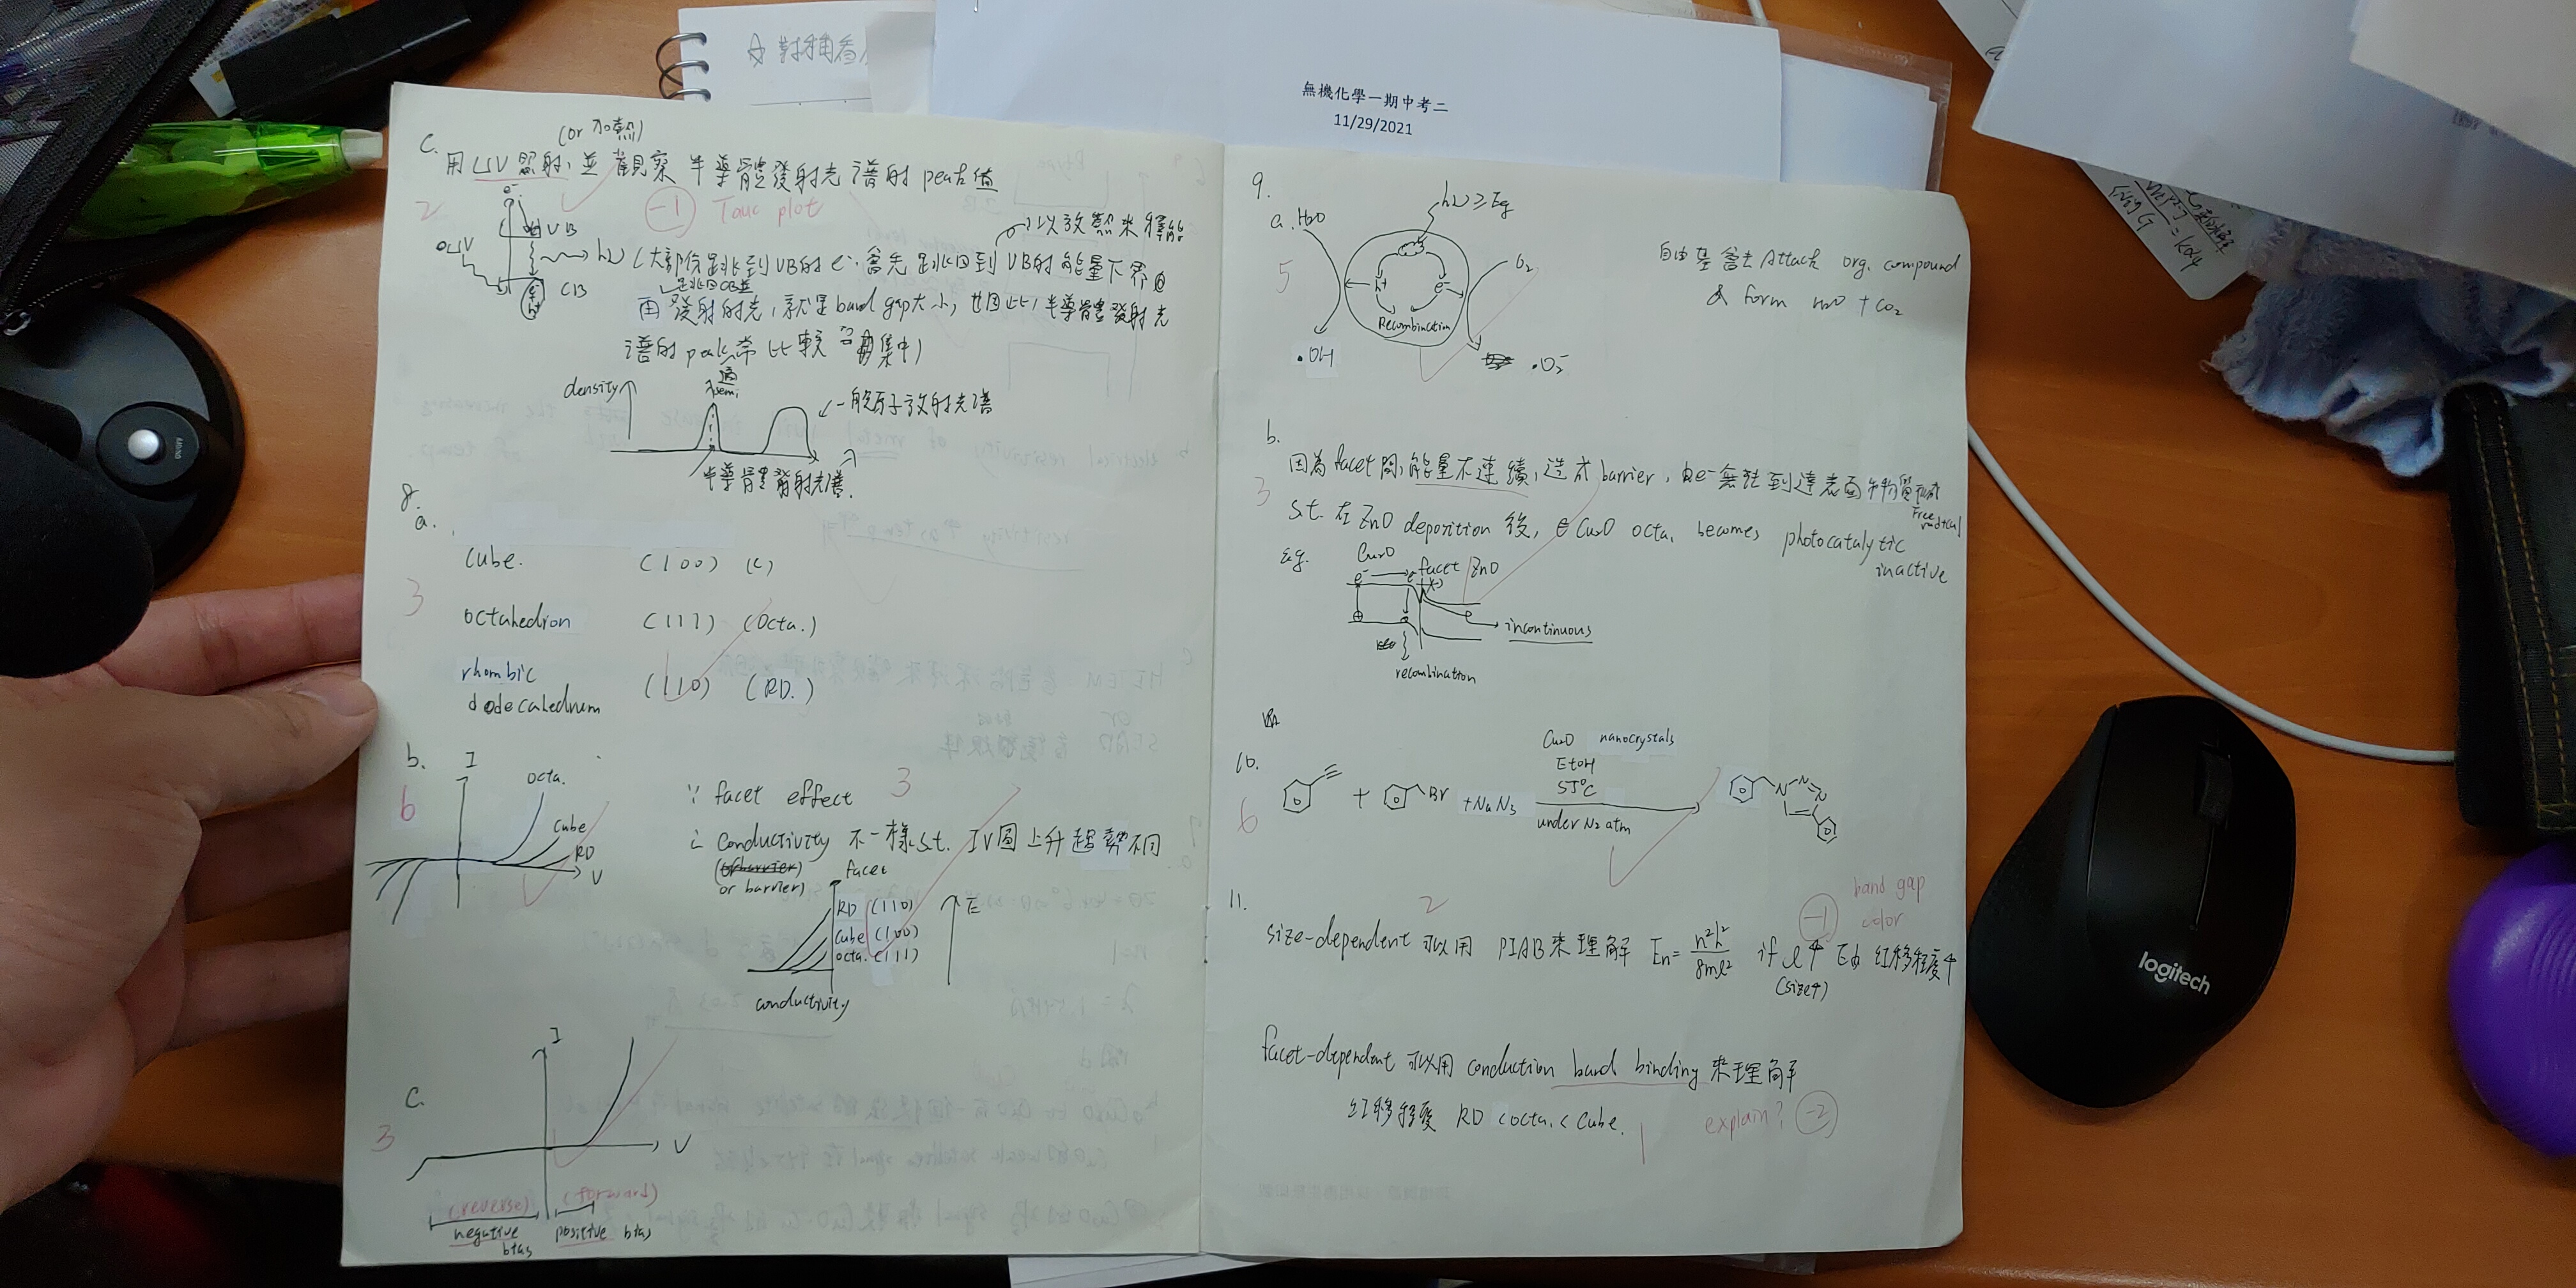 無機化學一期中考二
11/29/2021
(or 加熱)
C. 用 UV 照射, 並觀察 半導體發射光譜的 peak值
2
-1 Tauc plot
e-
VB
UV
hν
CB
h+
以放熱來釋能
(大部份跳到VB的 e- 會先跳回到 VB的 能量下界
跳回CB並
再發射的光, 就是band gap大小, 也因此, 半導體發射光
譜的 peak 常比較 集中)
density
λ semi.
一般原子放射光譜
半導體發射光譜
8.
a.
3
cube. (100) (C)
octahedron (111) (Octa.)
rhombic
dodecahedrum (110) (RD.)
b.
6
I
octa.
Cube
RD
V
∵ facet effect 3
∴ Conductivity 不一樣 s.t. IV圖上升趨勢不同
or barrier)
facet
RD (110)
Cube (100)
octa. (111)
E
conductivity
C.
3
I
V
(reverse) (forward)
negative bias positive bias
9.
a. H2O
5
hν ≥ Eg
h+ e-
Recombination
O2
·OH
·O2-
自由基會去 Attack org. compound
& form H2O + CO2
b.
3
因為 facet 間, 能量不連續, 造成 barrier, e- 無法到達表面
Free radical
s.t. 在 ZnO deposition 後, Cu2O octa. becomes photocatalytic
inactive
Eg.
Cu2O facet ZnO
e- e-
incontinuous
recombination
10.
6
Cu2O nanocrystals
EtOH
55°C
under N2 atm
+ Br + NaN3
N N N
11.
2
-1 band gap
color
size-dependent 可以用 PIAB 來理解 En = n²h²/8ml² if l↑ E↓ 紅移程度↑
(size↑)
facet-dependent 可以用 conduction band binding 來理解
紅移程度 RD < octa. < Cube.
1
explain? -2
logitech